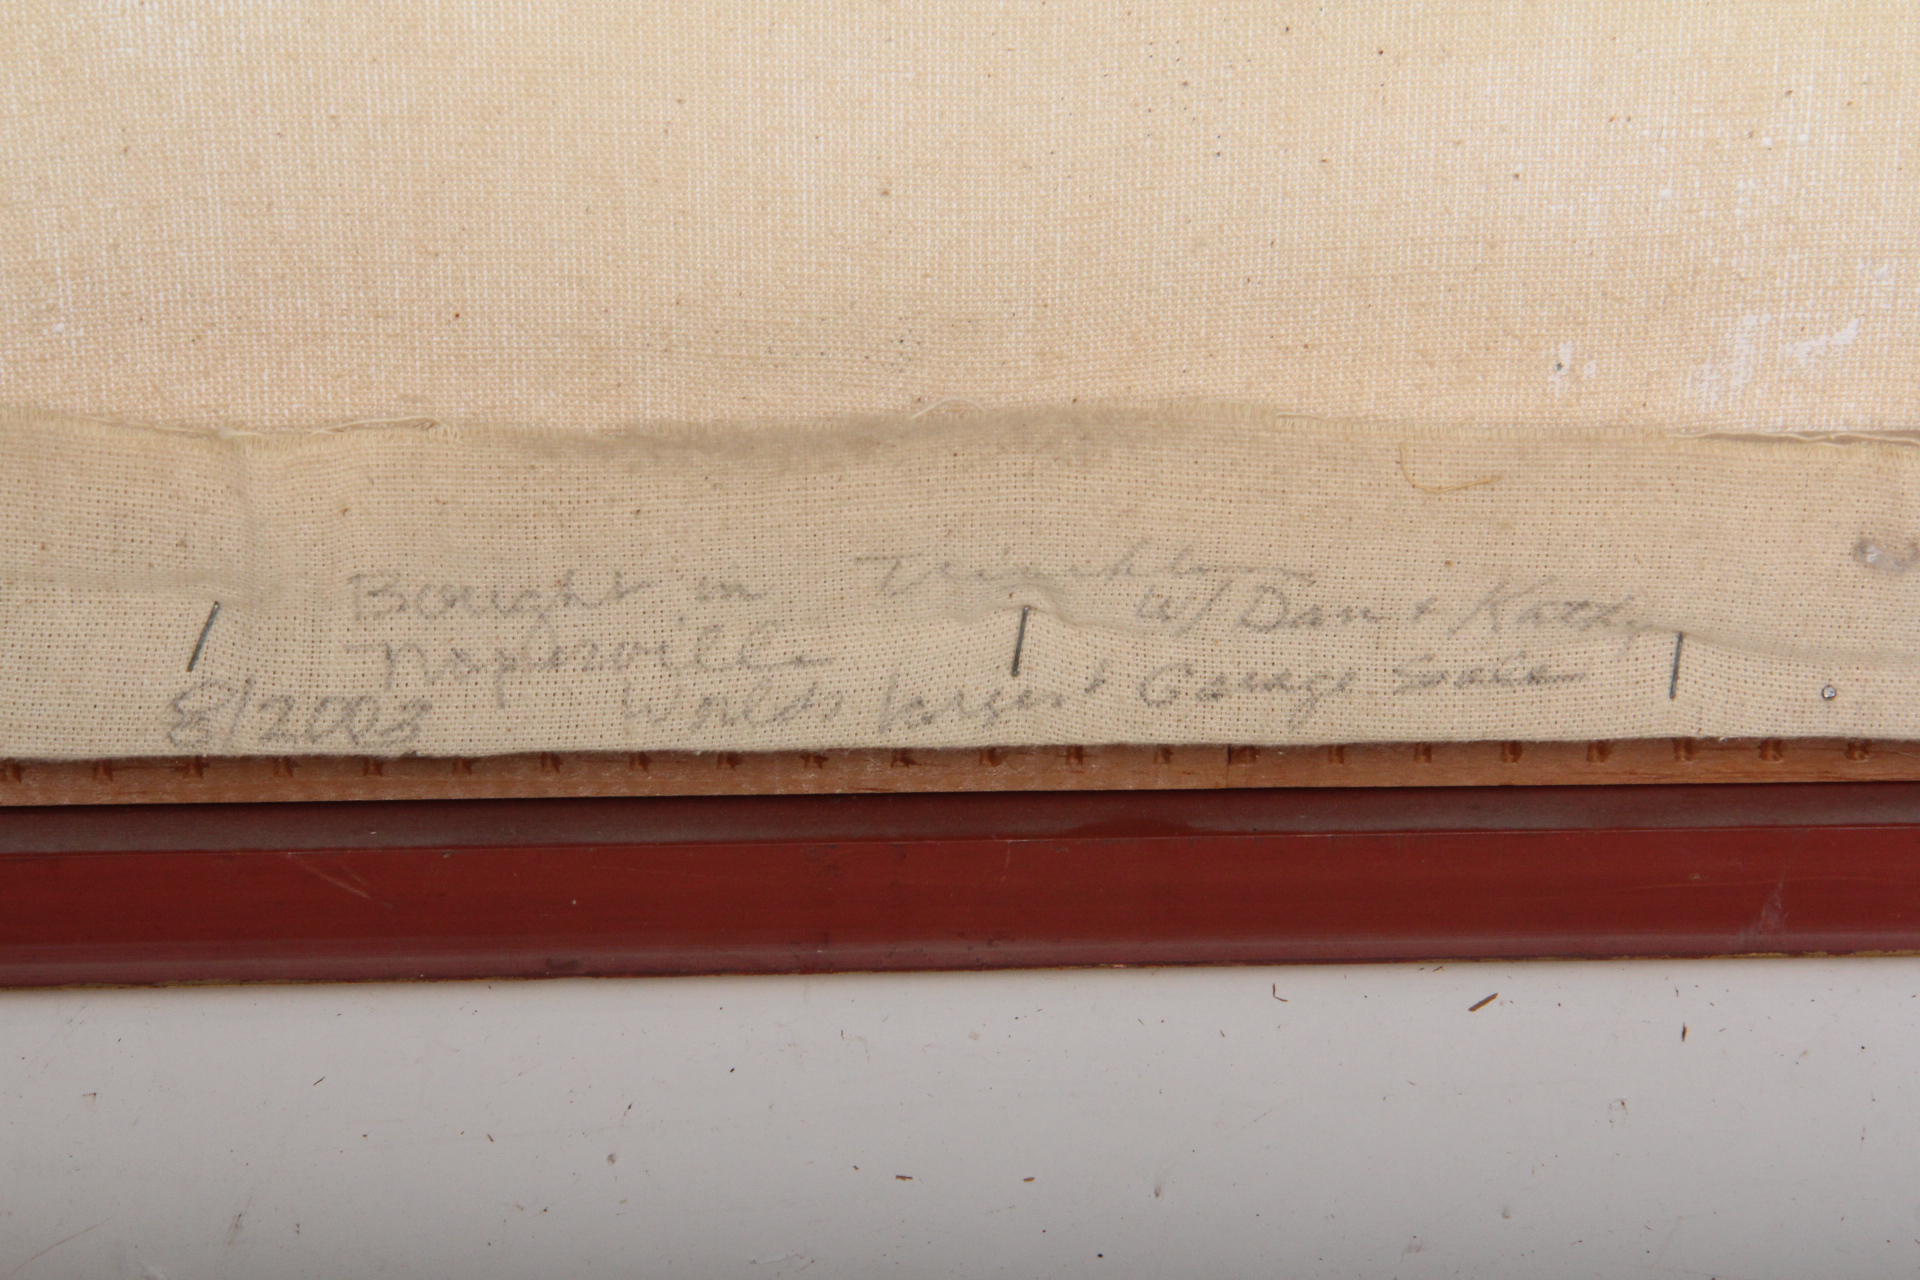 Bought in
w/ Dan + Kathy
Naperville
Worlds largest Garage Sale
8/2003